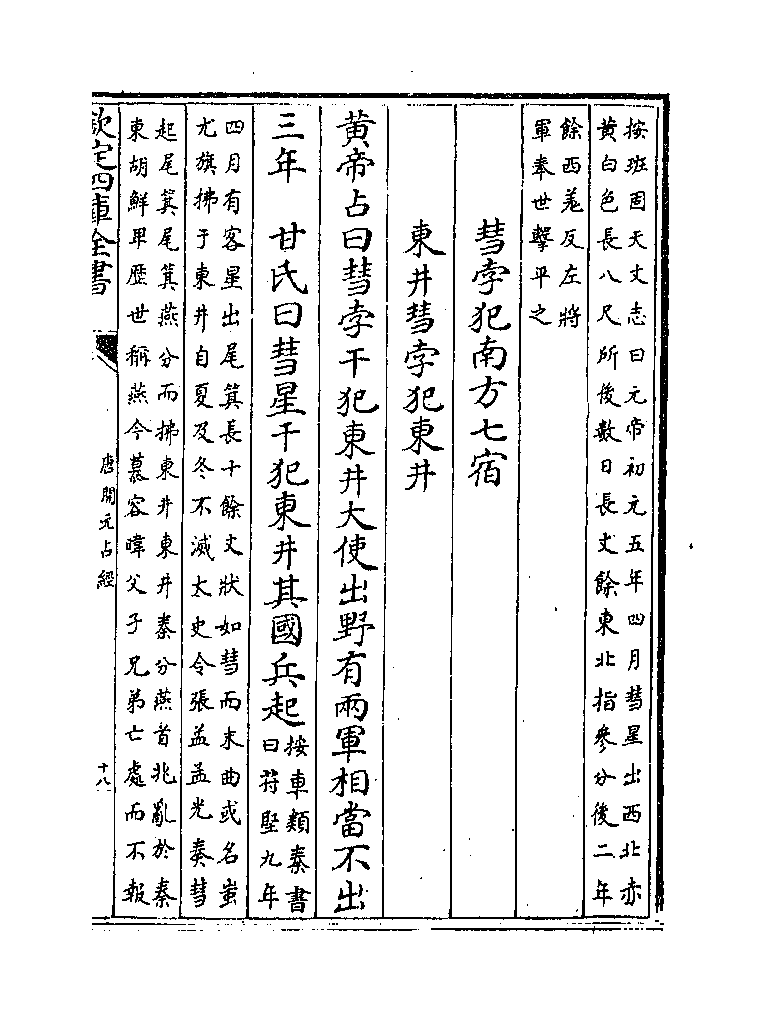 按班固天文志曰元帝初元五年四月彗星出西北赤
黄白色長八尺所後數日長丈餘東北指參分後二年
餘西羗反左將
軍奉世擊平之
彗孛犯南方七宿
東井彗孛犯東井
黄帝占曰彗孛干犯東井大使出野有兩軍相當不出
三年　甘氏曰彗星干犯東井其國兵起
按車類秦書
曰苻堅九年
四月有客星出尾箕長十餘丈狀如彗而末曲或名蚩
尤旗拂于東井自夏及冬不滅太史令張孟孟光奏彗
起尾箕尾箕燕分而拂東井東井秦分燕首兆亂於秦
東胡鮮卑歴世稱燕今慕容暐父子兄弟亡處而不報
欽定四庫全書
唐開元占經
十八